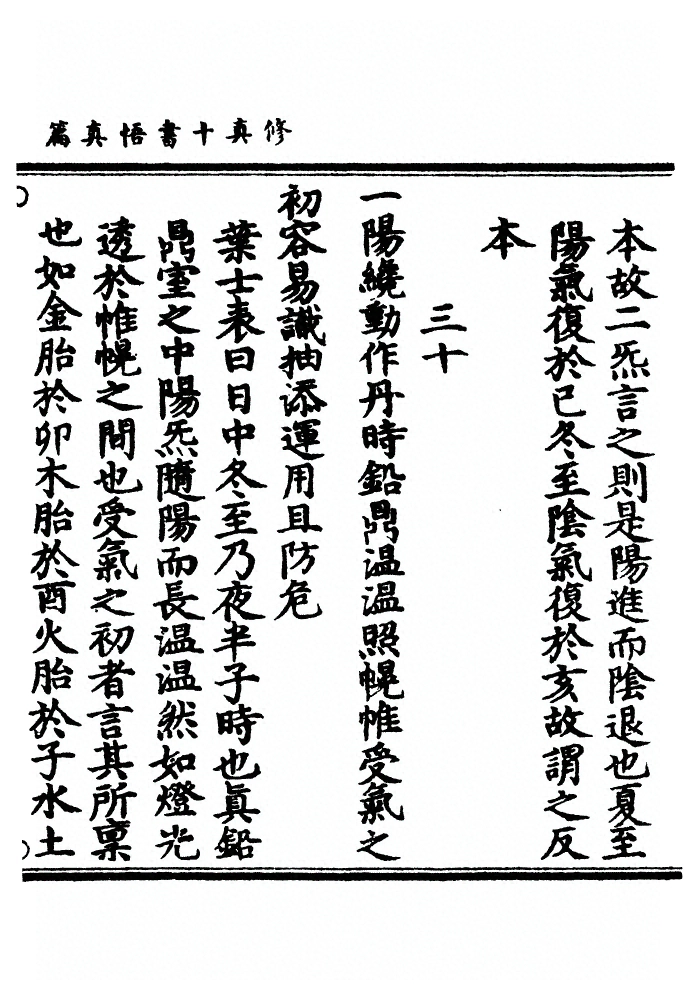 修真十書悟真篇
本故二炁言之則是陽進而陰退也夏至
陽氣復於已冬至陰氣復於亥故謂之反
本
三十
一陽纔動作丹時鉛鼎温温照幌帷受氣之
初容易識抽添運用且防危
葉士表曰日中冬至乃夜半子時也眞鉛
鼎室之中陽炁隨陽而長温温然如燈光
透於帷幌之間也受氣之初者言其所禀
也如金胎於卯木胎於酉火胎於子水土